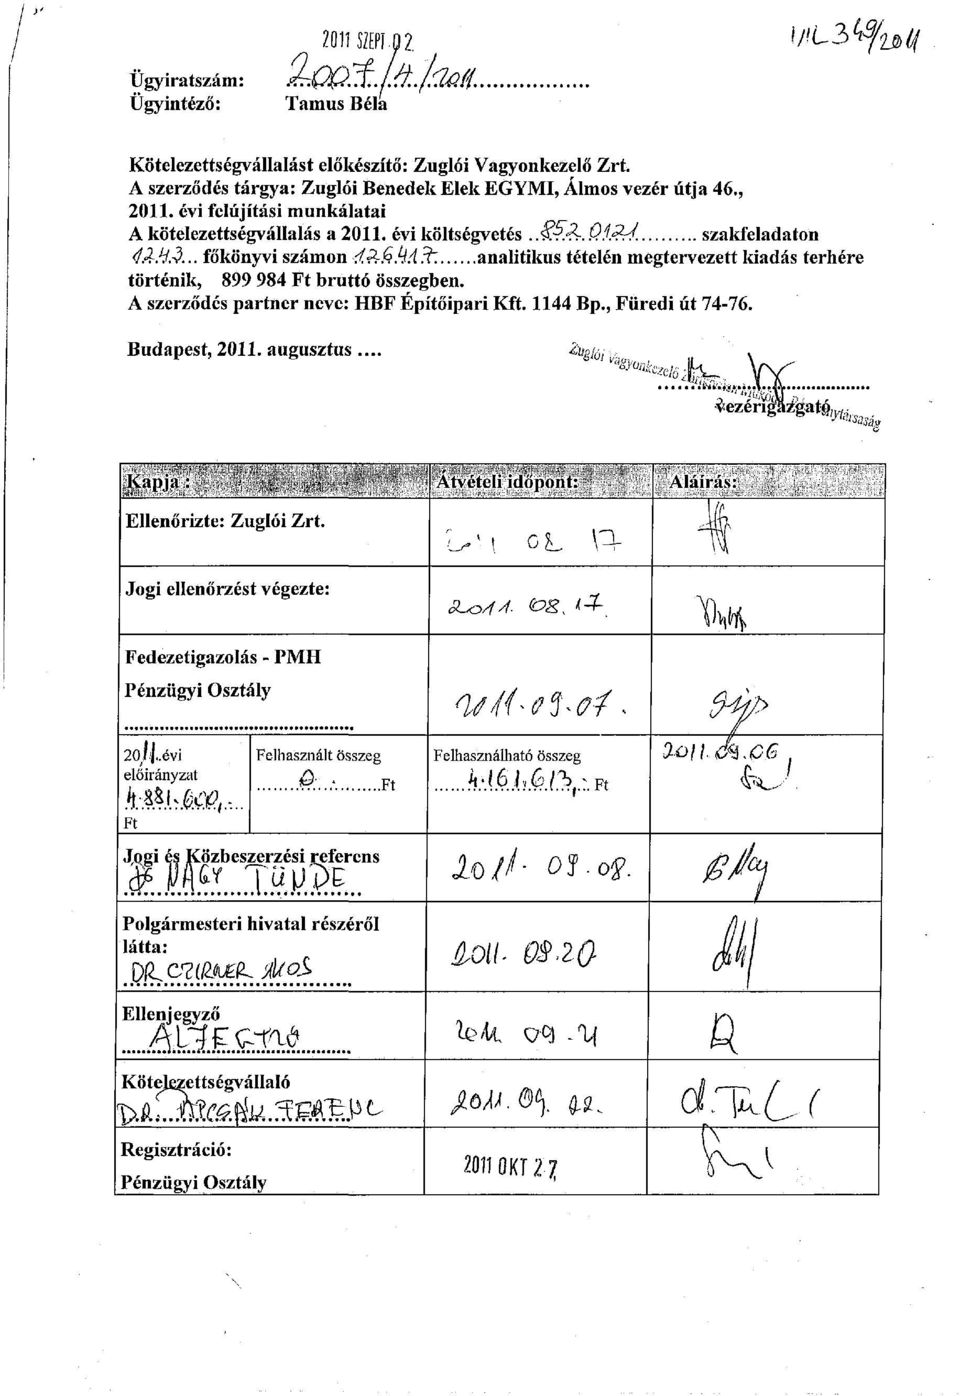 2011 SZEPT 02.
Ügyiratszám: 2007./4./2011
Ügyintéző: Tamus Béla
Kötelezettségvállalást előkészítő: Zuglói Vagyonkezelő Zrt.
A szerződés tárgya: Zuglói Benedek Elek EGYMI, Álmos vezér útja 46.,
2011. évi felújítási munkálatai
A kötelezettségvállalás a 2011. évi költségvetés ..852.0121.......... szakfeladaton
1243... főkönyvi számon 126417.......analitikus tételén megtervezett kiadás terhére
történik, 899 984 Ft bruttó összegben.
A szerződés partner neve: HBF Építőipari Kft. 1144 Bp., Füredi út 74-76.
Budapest, 2011. augusztus ....
Zuglói Vagyonkezelő
vezérigazgató
Kapja : Átvételi időpont: Aláírás:
Ellenőrizte: Zuglói Zrt.
2011 08 17
Jogi ellenőrzést végezte:
2011. 08. 17.
Fedezetigazolás - PMH
Pénzügyi Osztály
2011.09.07.
2011.évi Felhasznált összeg Felhasználható összeg 2011.09.06
előirányzat 0 Ft 4.161.613,- Ft
4.881.600,-
Ft
Jogi és Közbeszerzési referens
NAGY TÜNDE
2011. 09. 08.
Polgármesteri hivatal részéről
látta:
DR. CZIRNER ÁKOS
2011. 09.20
Ellenjegyző
ALJEGYZŐ
2011. 09. 21
Kötelezettségvállaló
DR. PAPCSÁK FERENC
2011. 09. 22.
Regisztráció:
Pénzügyi Osztály
2011 OKT 27.